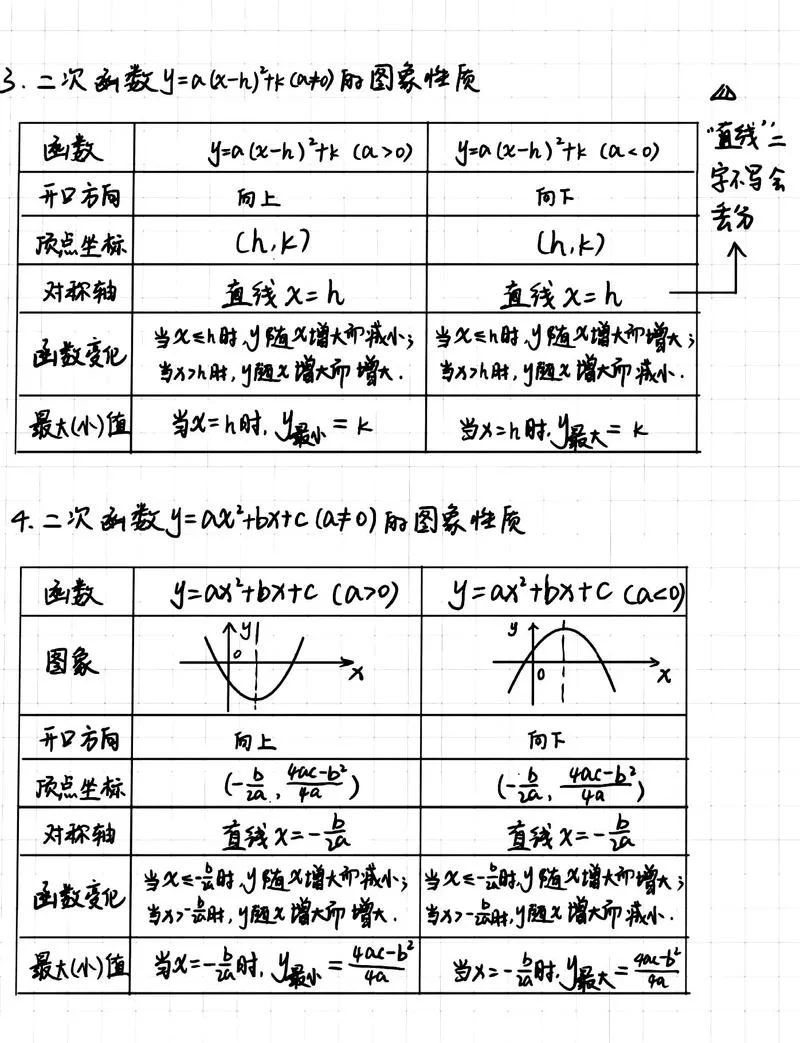 3. 二次函数y=a(x-h)²+k(a≠0)的图象性质
△!
"直线"二
字不写会
丢分
函数 y=a(x-h)²+k (a>0) y=a(x-h)²+k (a<0)
开口方向 向上 向下
顶点坐标 (h,k) (h,k)
对称轴 直线x=h 直线x=h
函数变化 当x≤h时,y随x增大而减小; 当x≤h时,y随x增大而增大;
当x>h时,y随x增大而增大. 当x>h时,y随x增大而减小.
最大(小)值 当x=h时,y最小=k 当x=h时,y最大=k
4. 二次函数y=ax²+bx+c(a≠0)的图象性质
函数 y=ax²+bx+c (a>0) y=ax²+bx+c (a<0)
图象 y 0 x y 0 x
开口方向 向上 向下
顶点坐标 (-b/2a, 4ac-b²/4a) (-b/2a, 4ac-b²/4a)
对称轴 直线x=-b/2a 直线x=-b/2a
函数变化 当x≤-b/2a时,y随x增大而减小; 当x≤-b/2a时,y随x增大而增大;
当x>-b/2a时,y随x增大而增大. 当x>-b/2a时,y随x增大而减小.
最大(小)值 当x=-b/2a时,y最小=4ac-b²/4a 当x=-b/2a时,y最大=4ac-b²/4a